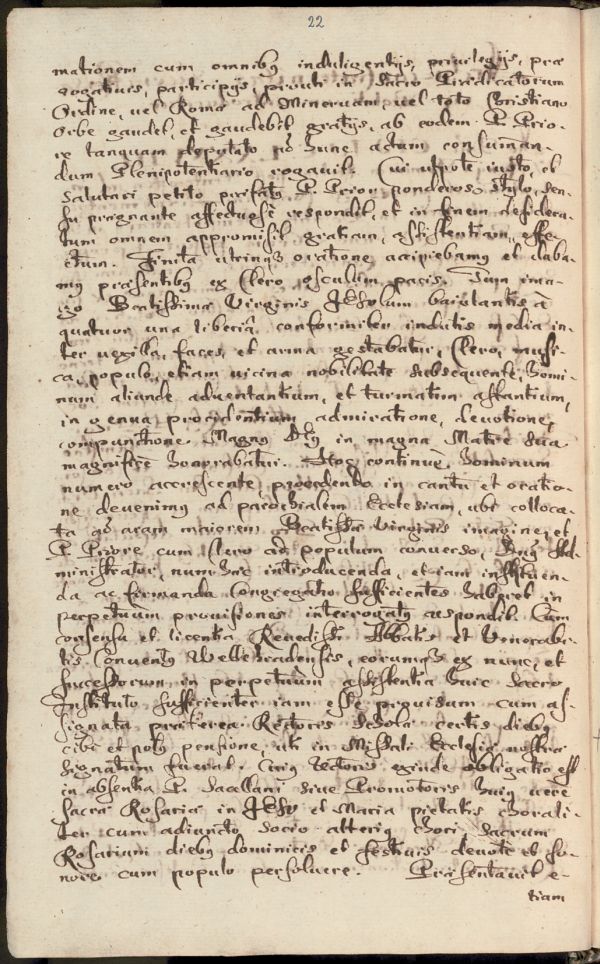 22
mationem cum omnibq indulgentijs, privilegijs, præ
rogativis, participijs, prouti in Sacro Prædicatorum
Ordine, vel Romæ ad Minervam, vel toto Christiano
Orbe gaudet, et gaudebit gratijs, ab eodem P. Prio-
re tanquam deputato ad hunc actum consuman-
dum Plenipotentiario rogavit. Cui utpote iusto, et
salutari petito præfatq P. Prior ponderoso stylo, sen-
su prægnante affectuose respondit, et in finem desidera-
tum omnem appromisit gratiam, assistentiam, effe-
ctum. Finita utrinq oratione accipiebamq et daba-
mq præsentibq ex Clero osculum pacis. Tum ima-
go Beatissimæ Virginis JESulum baiulantis à
quatuor una liberia conformiter indutis media in-
ter vexilla, faces, et arma gestabatur, Clero, musi-
ca, populo, etiam vicina nobilitate subsequente, homi-
num aliunde adventantium, et turmatim astantium,
in genua procidentium admiratione, devotione,
compunctione. Magnq Dq in magna Matre sua
magnifice honorabatur. Hoc continuè hominum
numero accrescente, procedendo in cantu et oratio-
ne devenimq ad parochialem Ecclesiam, ubi colloca-
ta ad aram maiorem Beatissæ Virginis imagine, et
P. Priore cum Clero ad populum converso, Dnq Ad-
ministrator, num huic introducenda, et iam instituen-
da ac firmanda Congregatio sufficientes haberet in
perpetuum provisiones interrogatq respondit. Cum
consensu et licentia Revedissi Abbatis et Venerabi-
lis Conventq Wellehradensis, eorumq ex nunc, et
successorum in perpetuum assistentia huic sacro
Instituto sufficienter iam esse provisum cum as-
signata præterea Rectoris Scholæ certis diebq
cibi et potq pensione, uti in Missali Ecclesiæ nostræ
signatum fuerat. Cuiq Rectoris exinde obligatio est
in absentia P. Sacellani sive Promotoris huiq veræ
sacræ Rosariæ in JESu et Maria pietatis chorali-
ter cum adiuncto socio alteriq chori sacrum
Rosarium diebq dominicis et festivis devote et so-
nore cum populo persolvere. Præsentavit e-
tiam